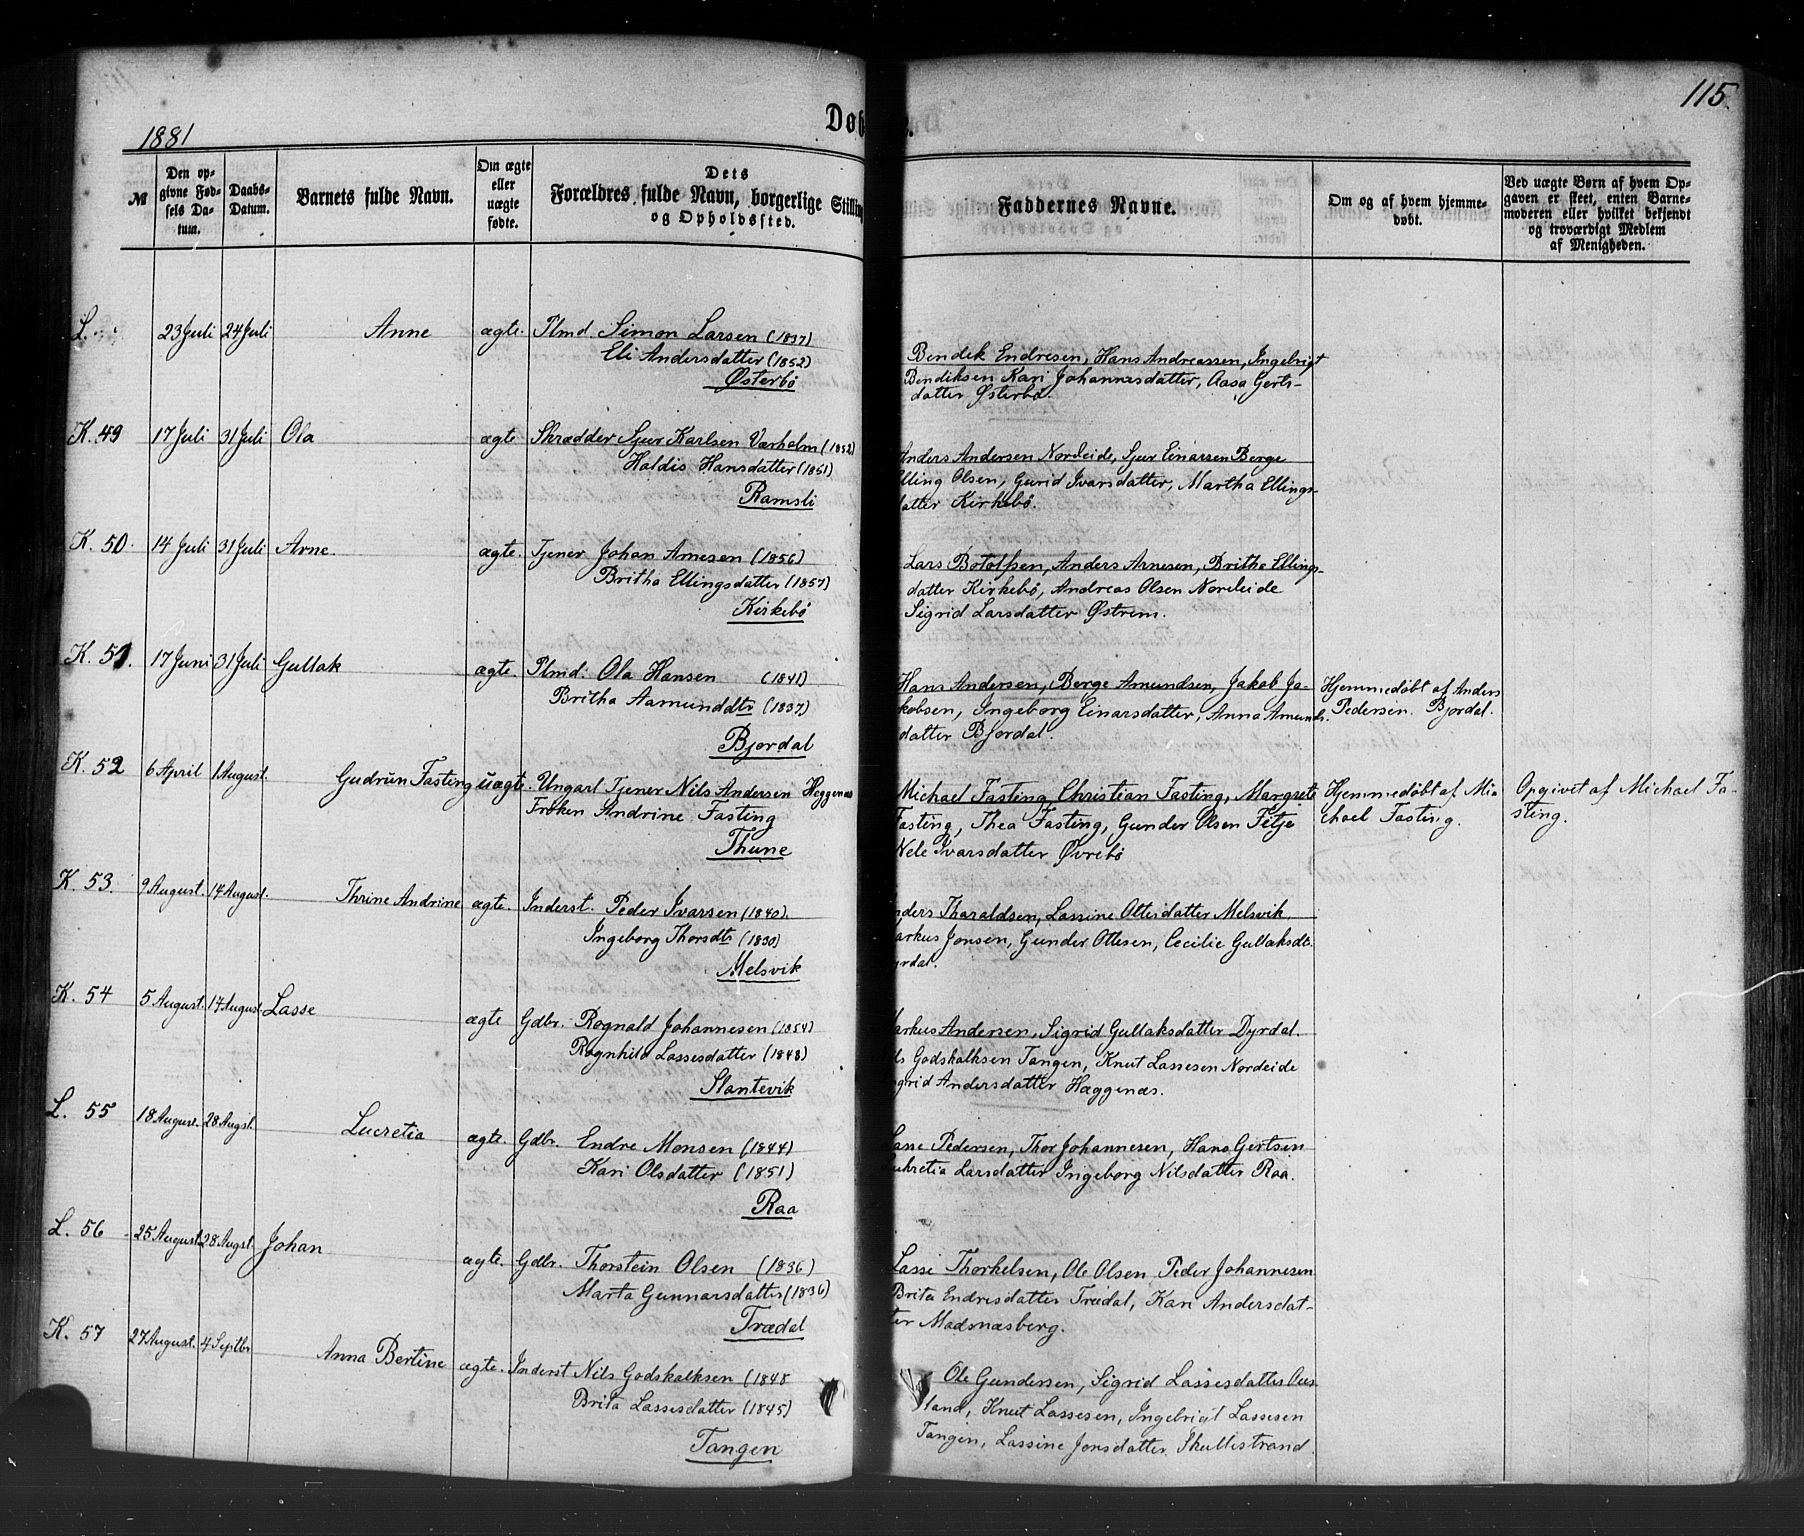 115.
1881
Døb
№
Den op-
givne Fød-
sels Da-
tum.
Daabs-
Datum.
Barnets fulde Navn.
Om ægte
eller
uægte
fødte.
Dets
Forældres fulde Navn, borgerlige Stilling
og Opholdssted.
Faddernes Navne.
Om og af hvem hjemme-
døbt.
Ved uægte Børn af hvem Op-
gaven er skeet, enten Barne-
moderen eller hvilket bekjendt
og troværdigt Medlem
af Menigheden.
L. 23 Juli 24 Juli Anne ægte. Plmd. Simon Larsen (1837)
Eli Andersdatter (1852)
Østerbø
Bendik Endresen, Hans Andreassen, Ingebrigt
Bendiksen Kari Johannesdatter, Aasa Gerts-
datter Østerbø.
K. 49 17 Juli 31 Juli Ola ægte Skrædder Sjur Karlsen Værholm (1852)
Haldis Hansdatter (1851)
Ramsli
Anders Andersen Nordeide, Sjur Einarssen Berge
Elling Olsen, Gurid Ivarsdatter, Martha Ellings-
datter Kirkebø.
K. 50. 14 Juli 31 Juli Arne. ægte. Tjener Johan Arnesen (1856)
Britha Ellingsdatter (1857)
Kirkebø
Lars Botolfsen, Anders Arnesen, Britha Ellings-
datter Kirkebø, Andreas Olsen Nordeide
Sigrid Larsdatter Østrem.
K. 51. 17 Juni 31 Juli Gullak ægte. Plmd: Ola Hansen (1841)
Britha Aamunddtr (1837)
Bjordal
Hans Andersen, Berge Amundsen, Jakob Ja-
kobsen, Ingeborg Einarsdatter, Anna Amunds-
datter Bjordal.
Hjemmedøbt af Anders
Pedersen Bjordal.
K. 52 6 April 1 August. Gudrun Fasting uægte. Ungarl Tjener Nils Andersen Hæggenæs
Frøken Andrine Fasting
Thune
Michael Fasting, Christian Fasting, Margrete
Fasting, Thea Fasting, Gunder Olsen Fetje
Nele Ivarsdatter Øvrebø
Hjemmedøbt af Mi-
chael Fasting.
Opgivet af Michael Fa-
sting.
K. 53. 9 August. 14 August. Thrine Andrine ægte. Inderst. Peder Ivarsen (1840).
Ingeborg Thorsdtr (1830)
Melsvik
nders Tharaldsen, Lassine Ottersdatter Melsvik.
arkus Jonsen, Gunder Ottesen, Cecilie Gullaksdtr.
yrdal.
K. 54 5 August. 14 August. Lasse ægte Gdbr. Rognald Johannesen (1854)
Ragnhild Lassesdatter (1848)
Slantevik
Markus Andersen, Sigrid Gullaksdatter Dyrdal.
ls Godskalksen Tangen, Knut Lassesen Nordeide
ngrid Andersdatter Hæggenæs.
L. 55 18 August. 28 Augst. Lucretia ægte. Gdbr. Endre Monsen (1844)
Kari Olsdatter (1851)
Raa
Lasse Pedersen, Thor Johannesen, Hans Gertsen
ukretia Larsdatter Ingeborg Nilsdatter Raa.
L. 56 25 August 28 Augst. Johan ægte. Gdbr. Thorstein Olsen (1836)
Marta Gunnarsdatter (1836)
Trædal
Lasse Thorkelsen, Ole Olsen, Peder Johannesen
Brita Endresdatter Trædal, Kari Andersdat-
ter Madsnæsberg.
K. 57 27 August. 4 Septbr Anna Bertine ægte. Inderst Nils Godskalksen (1848
Brita Lassesdatter (1845)
Tangen
Ole Gundersen, Sigrid Lassesdatter Ous-
land, Knut Lassesen, Ingebrigt Lassesen
Tangen, Lassine Jonsdatter Skullestrand.